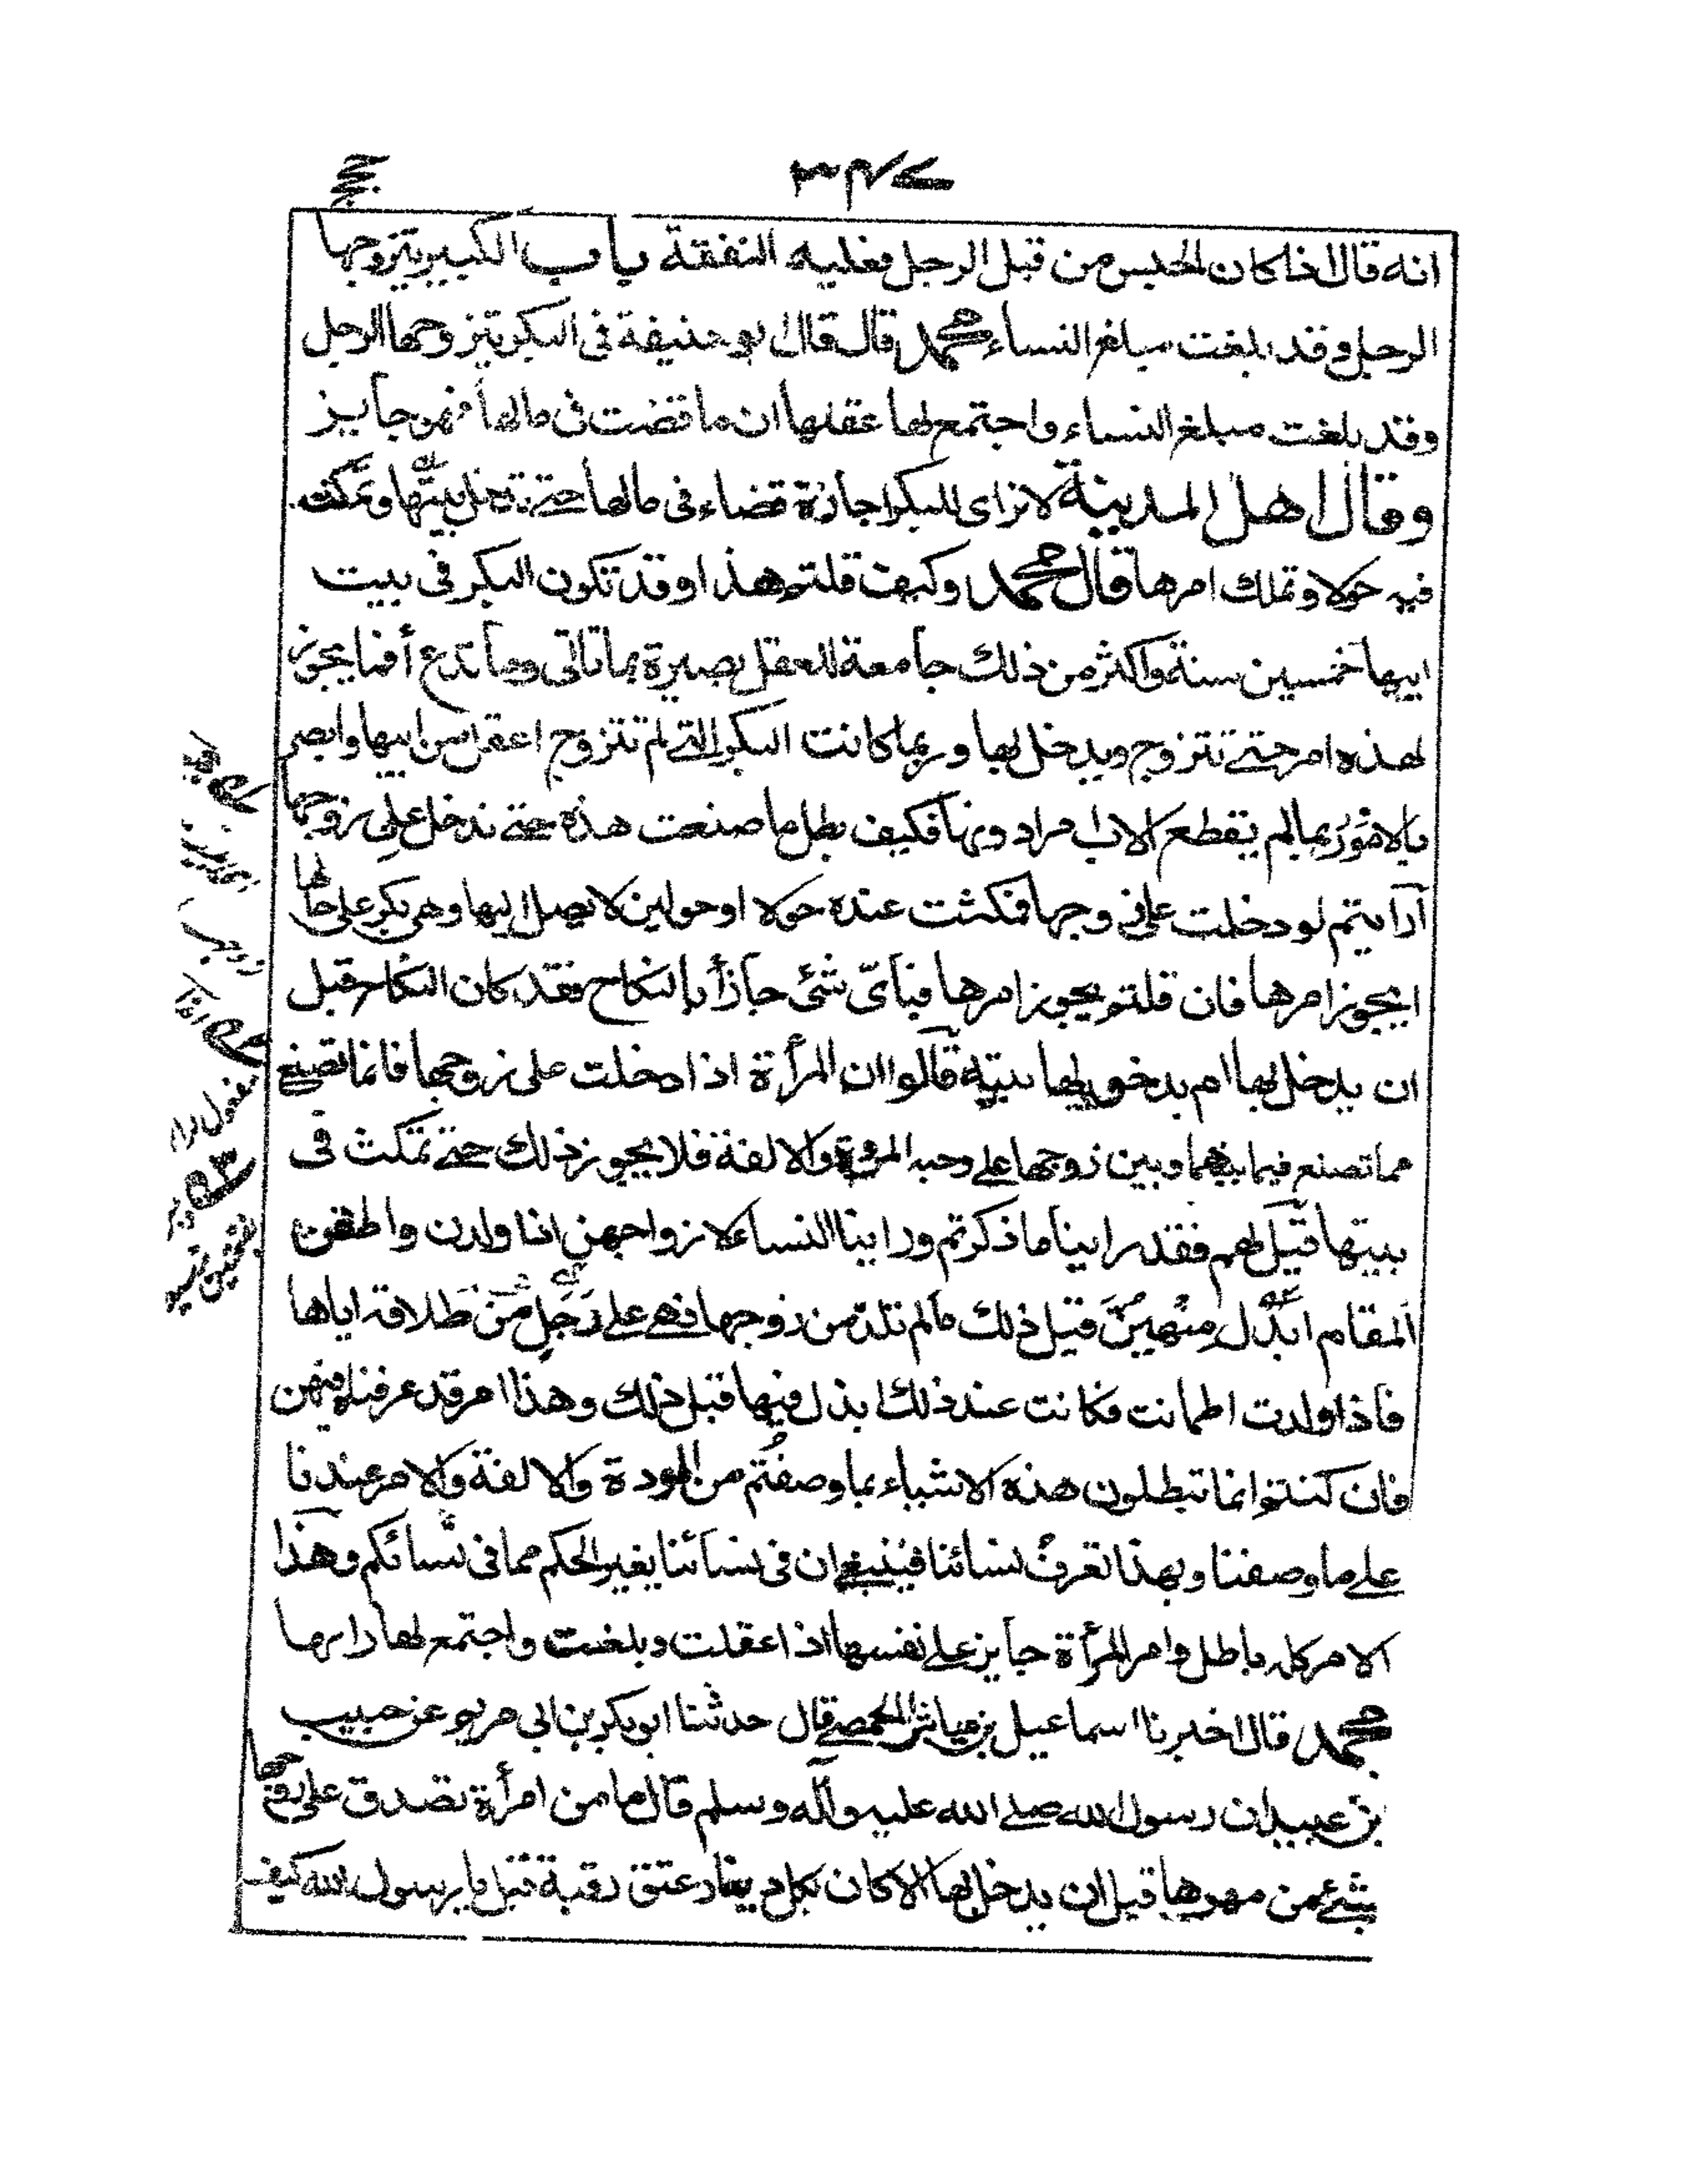 حجج
٣٤٧
انه قال اذا كان الحبس من قبل الرجل فعليه النفقة باب الكبير يتزوجها
الرجل وقد بلغت مبلغ النساء محمد قال قال ابو حنيفة فى البكر يتزوجها الرجل
وقد بلغت مبلغ النساء واجتمع لها عقلها ان ما قضت فى مالها فهو جايز
وقال اهل المدينة لا نراى للبكر اجازة قضاء فى مالها حتے تدخل بيتها وتمكث
فيه حولا وتملك امرها قال محمد وكيف قلتم هذا وقد تكون البكر فى بيت
ابيها خمسين سنة واكثر من ذلك جامعة للعقل بصيرة بما تاتى وما تدع أفما يجوز
لهذه امر حتے تتزوج ويدخل بها وربما كانت البكر التے لم تتزوج اعقل من ابيها وابصر
بالامور بما لم يقطع الاب مراد ونها فكيف بطل ما صنعت هذه حتے تدخل على زوجها
أرأيتم لو دخلت على زوجها فمكثت عنده حولا او حولين لا يصل اليها وهى بكر على حالها
ايجوز امرها فان قلتم يجوز امرها فبأىّ شئ جاز أبالنكاح فقد كان النكاح قبل
ان يدخل بها ام بدخولها بيته قالوا ان المرأة اذا دخلت على زوجها فانما تصنع
مما تصنع فيما بينهما وبين زوجها علے وجه المروة والالفة فلا يجوز ذلك حتے تمكث فى
بيتها قيل لهم فقد راينا ما ذكرتم وراينا النساء لازواجهن اذا ولدن واطلقن
المقام ابذل منهن قبل ذلك ما لم تلد من زوجها فهے علے رجل من طلاقه اياها
فاذا ولدت اطمانت فكانت عند ذلك ابذل فيها قبل ذلك وهذا امر قد عرفناه فيهن
فان كنتم انما تبطلون هذه الاشياء بما وصفتم من المودة والالفة والامر عندنا
علے ما وصفنا وبهذا تعرف نسائنا فينبغے ان فى نسائنا بغير الحكم مما فى نسائكم وهذا
الامر كله باطل وامر المرأة جايز علے نفسها اذا عقلت وبلغت واجتمع لها رايها
محمد قال اخبرنا اسماعيل بن عياش الحمصے قال حدثنا ابو بكر بن ابى مريم عن حبيب
بن عبيد ان رسول الله صلے الله عليه وآله وسلم قال ما من امرأة تصدق على زوجها
بشئے من مهرها قبل ان يدخل بها الا كان بكل دينار عتق رقبة قيل يا رسول الله كيف